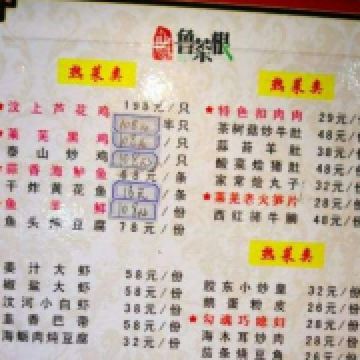 鲁菜根
热菜类
★汶上芦花鸡 198元/只
★莱芜黑鸡 /只
泰山炒鸡 /只
★蒜香海鲈鱼 68元/条
干炸黄花鱼 /条
★鱼羊鲜 /份
鱼头炖豆腐 78元/份
姜汁大虾 58元/份
椒盐大虾 58元/份
汶河小白虾 38元/份
韭香巴蒂 38元/份
海蛎肉炖豆腐 32元/份
热菜类
★特色扣肉肉 29元/
茶树菇炒牛肚 48元/
蒜苔羊肚
酸菜烩猪肚 48元/
家常烩丸子 32元/
★莱芜老火笋片 28元/
西红柿牛腩 48元/
热菜类
胶东小炒皇 32元/份
螃蛋粉皮 26元/份
★
海木耳炒肉 28元/份